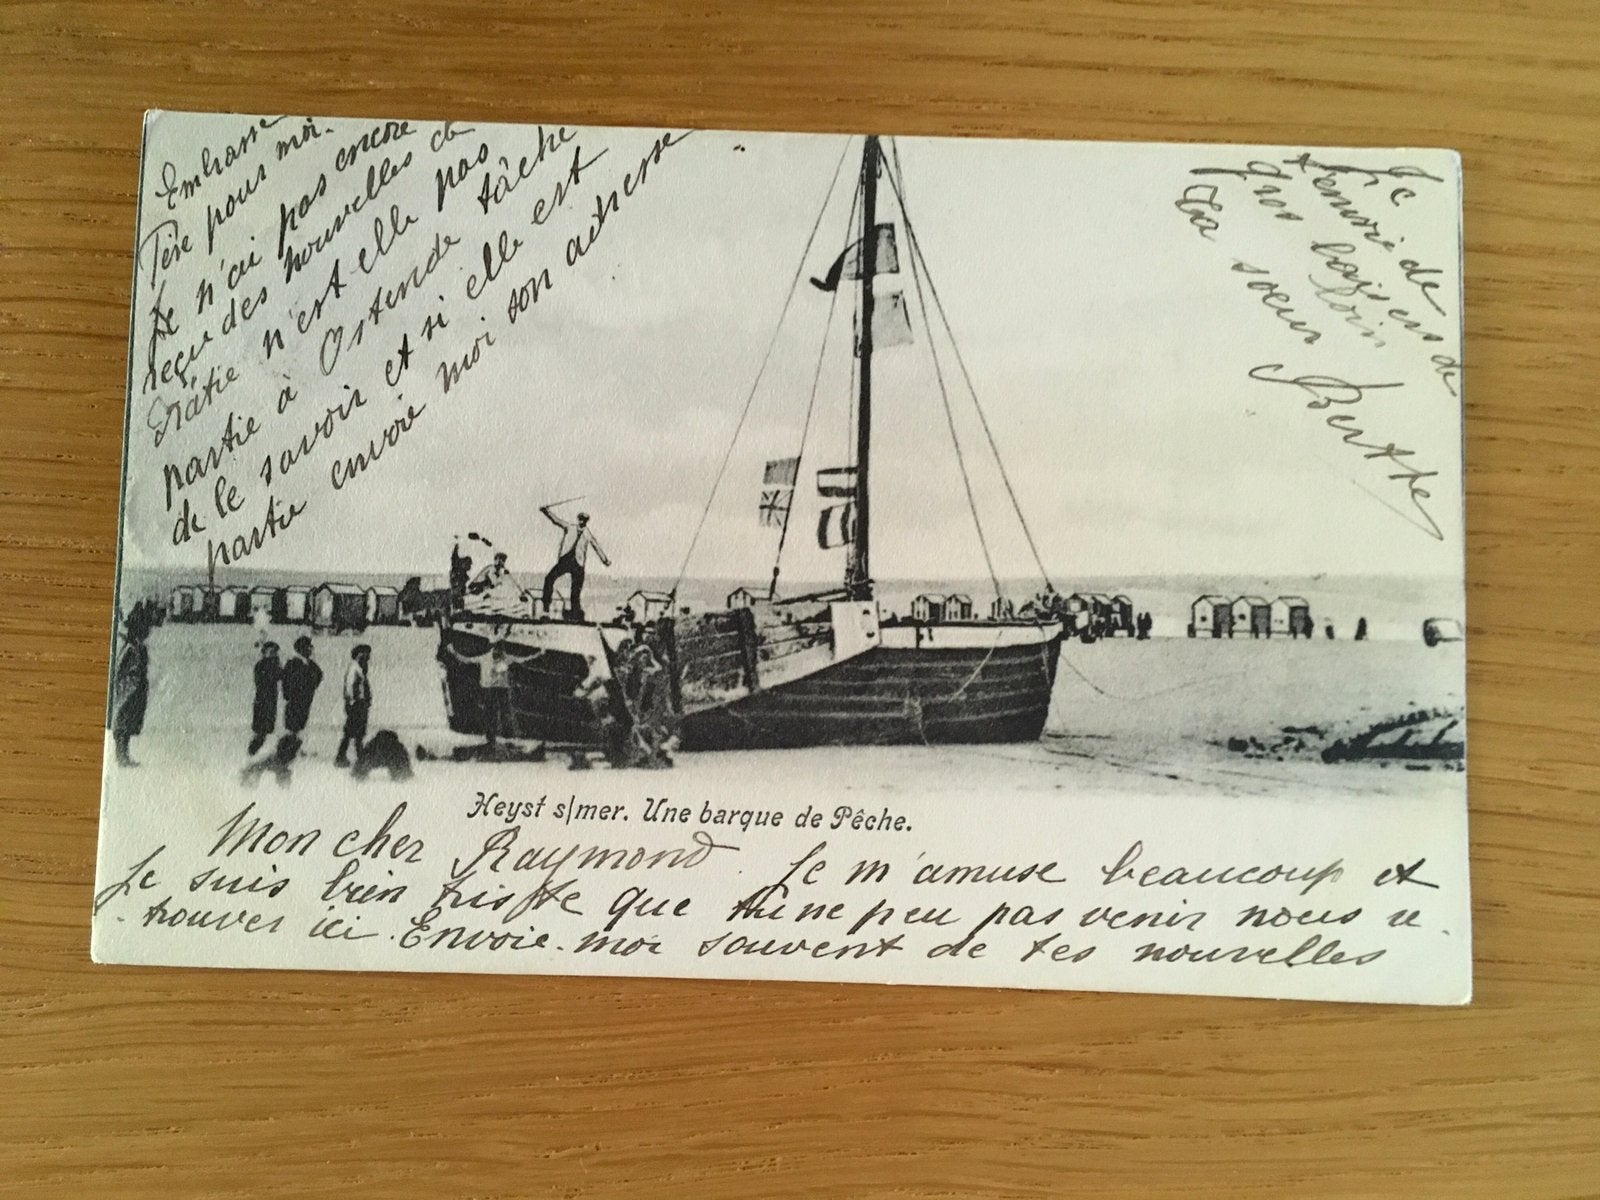 Heyst s/mer. Une barque de Pêche.
Mon cher Raymond Je m'amuse beaucoup et
Je suis bien triste que tu ne peu pas venir nous re
trouver ici. Envoie-moi souvent de tes nouvelles
Embrasse
Père pour moi.
Je n'ai pas encore
reçu des nouvelles de
n'est elle pas
partie à Ostende tâche
de le savoir et si elle est
partie envoie moi son adresse
Je
t'envoie de
gros baisers de
loin
Ta soeur Berthe